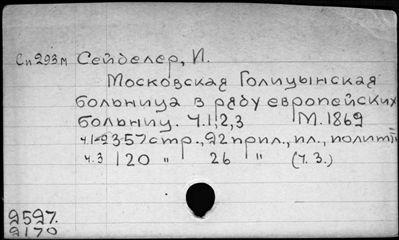 Сп 293м Сейделер, И.
Московская Голицынская
больница в ряду европейских
больниц. Ч.1,2,3 М.1869
ч.1-2 357 стр., 92 прил., пл., политип
ч.3 120 " 26 " (ч. 3.)
9597.
9170